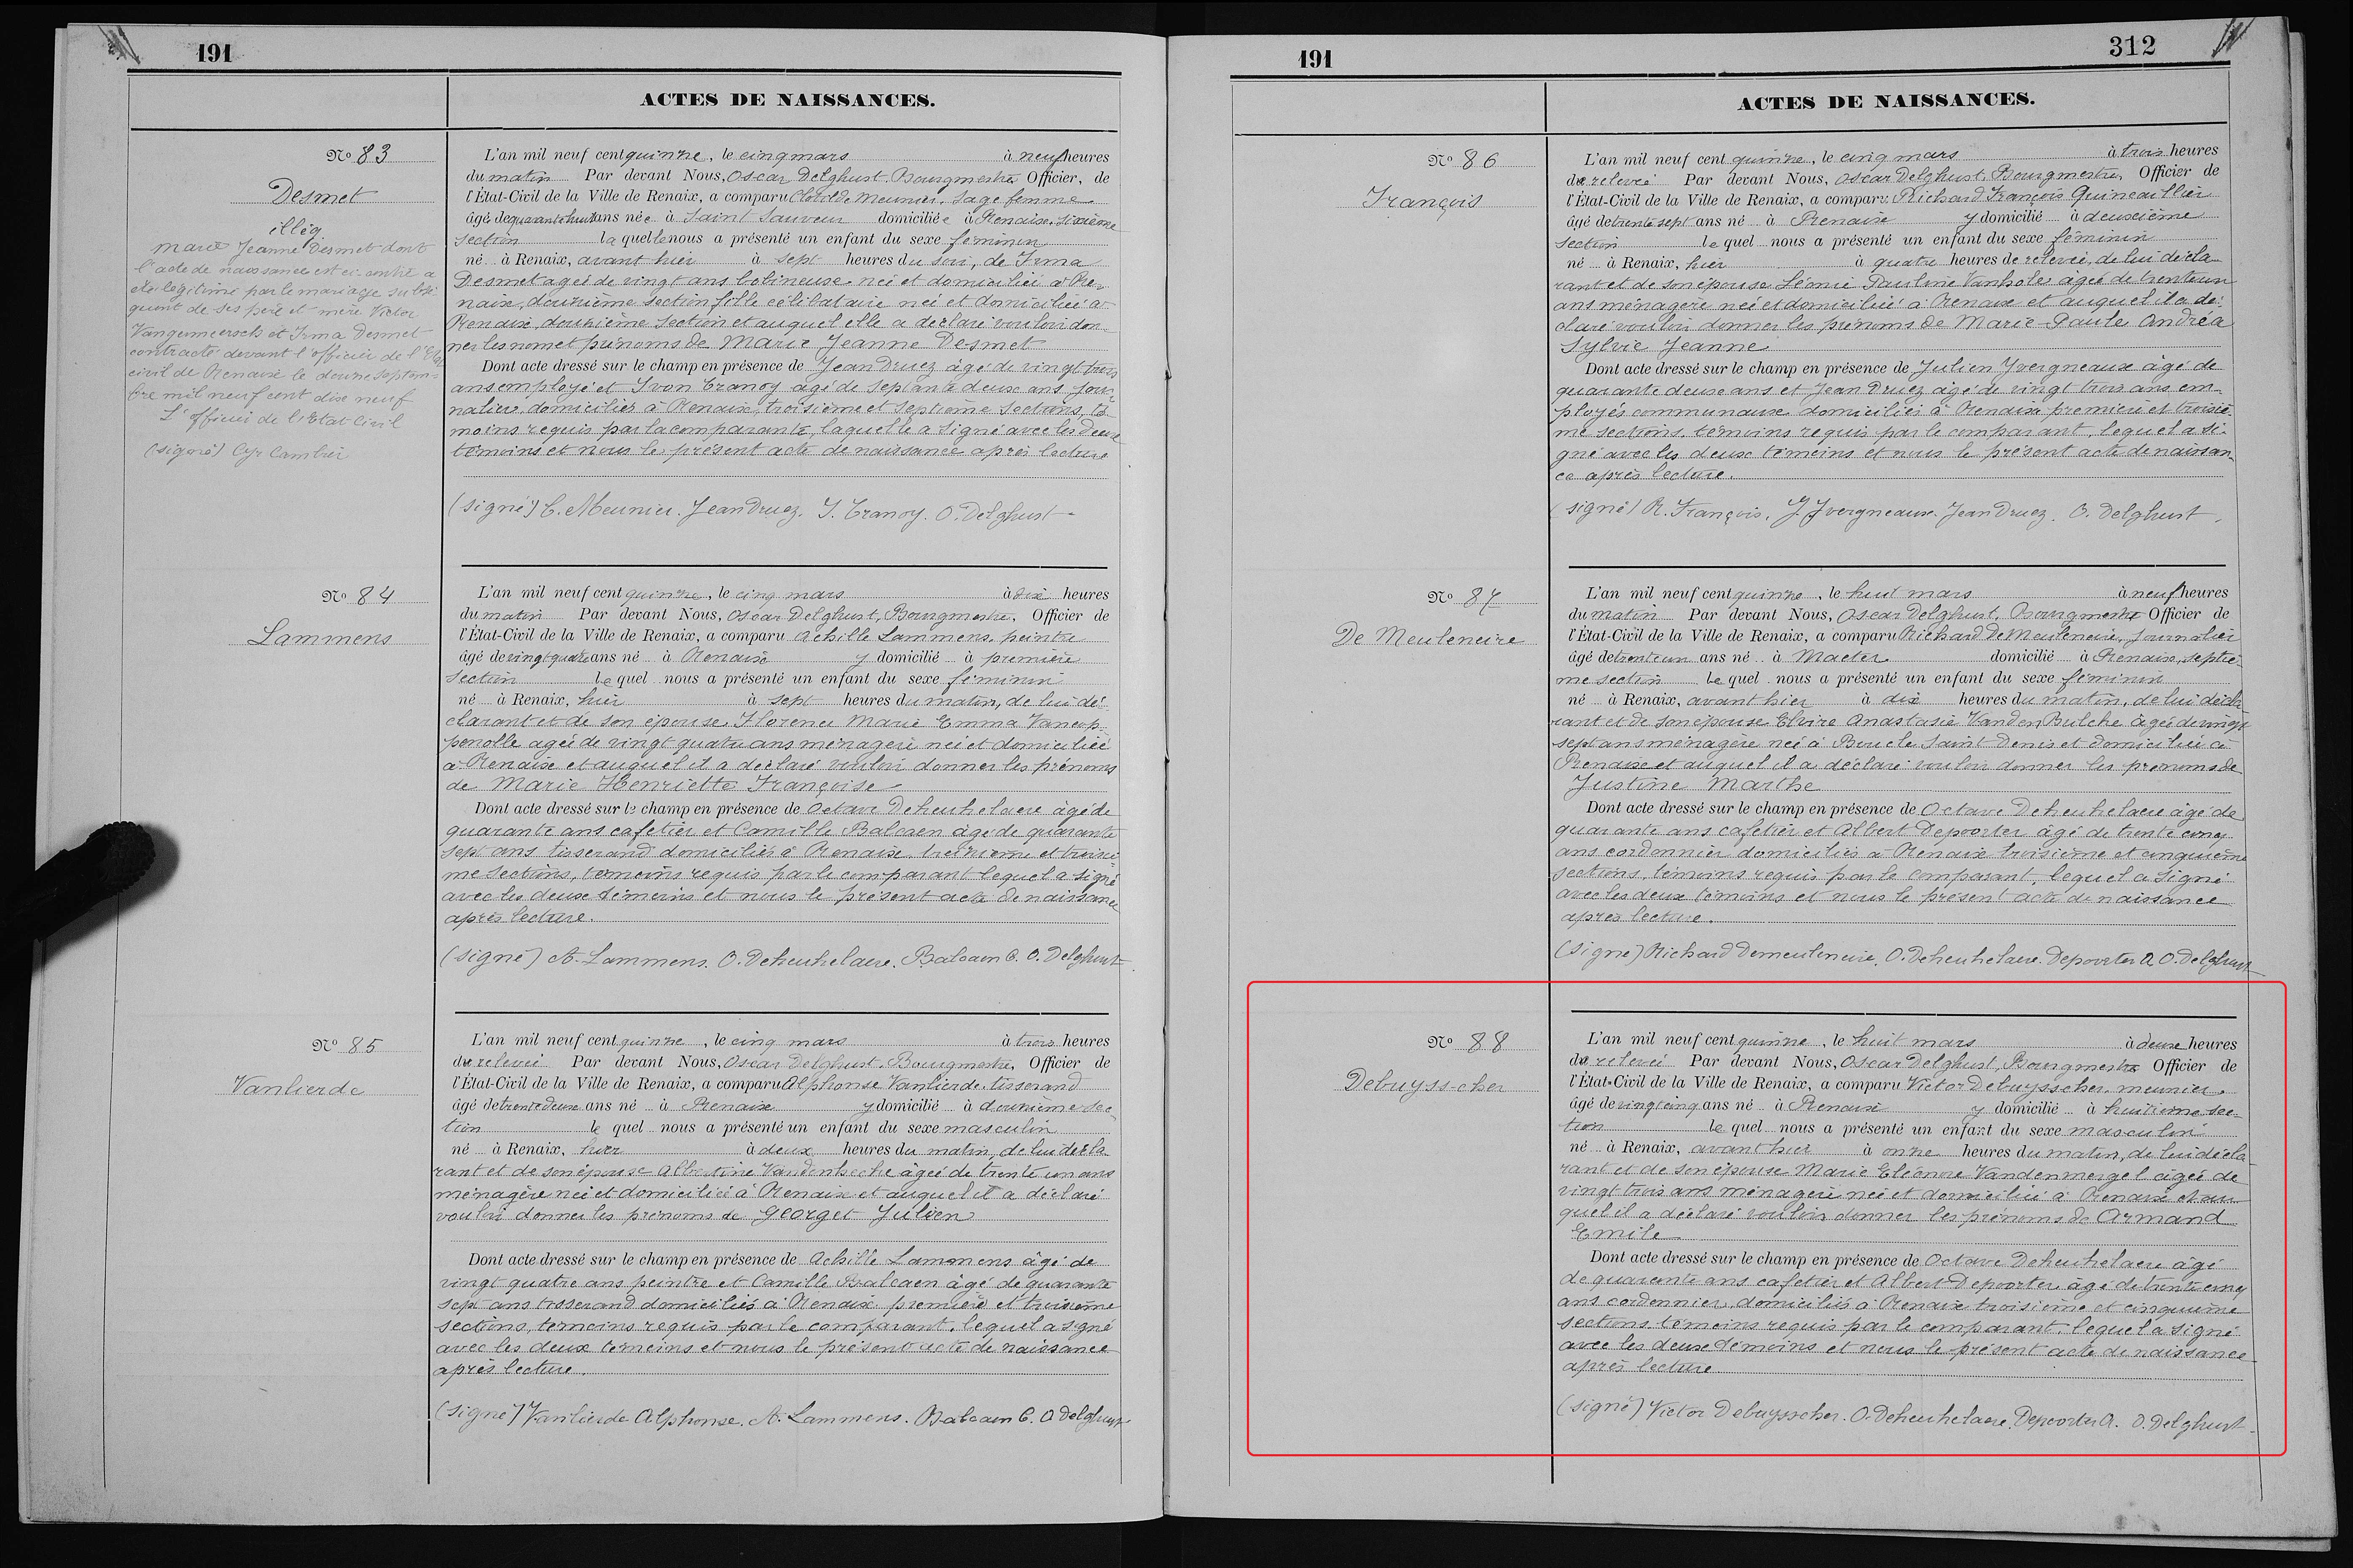 191
ACTES DE NAISSANCES.
Nº 83
Desmet
illég.
Marie Jeanne Desmet dont
l'acte de naissance est ci-contre a
été légitimé par le mariage subsé
quent de ses père et mère Victor
et Irma Desmet
contracté devant l'officier de l'Etat
civil de Renaix le douze septem-
bre mil neuf cent dix neuf
L'officier de l'Etat Civil
(signé) Cyr Cambier
L'an mil neuf cent quinze, le cinq mars à neuf heures
du matin Par devant Nous, Oscar Delghust, Bourgmestre, Officier, de
l'État-Civil de la Ville de Renaix, a comparu Clotilde Meunier, sage femme
âgé de quarante huit ans née à Saint Sauveur domiciliée à Renaix, sixième
section laquelle nous a présenté un enfant du sexe féminin
né à Renaix, avant hier à sept heures du soir, de Irma
Desmet agée de vingt ans bobineuse née et domiciliée à Re-
naix, douzième section fille célibataire née et domiciliée à
Renaix, douzième section et auquel elle a déclaré vouloir don
ner les nom et prénoms de Marie Jeanne Desmet
Dont acte dressé sur le champ en présence de Jean Druez âgé de vingt trois
ans employé et Yvon Tranoy agé de septante deux ans jour-
nalier, domiciliés à Renaix, troisième et septième sections, té
moins requis par la comparante, laquelle a signé avec les deux
témoins et nous le présent acte de naissance après lecture
(signé) C. Meunier. Jean Druez. Y. Tranoy. O. Delghust
Nº 84
Lammens
L'an mil neuf cent quinze, le cinq mars à dix heures
du matin Par devant Nous, Oscar Delghust, Bourgmestre, Officier de
l'État-Civil de la Ville de Renaix, a comparu Achille Lammens, peintre
âgé de vingt quatre ans né à Renaix y domicilié à première
section lequel nous a présenté un enfant du sexe féminin
né à Renaix, hier à sept heures du matin, de lui dé-
clarant et de son épouse Florence Marie Emma Vancop-
penolle agée de vingt quatre ans ménagère née et domiciliée
à Renaix et auquel il a déclaré vouloir donner les prénoms
de Marie Henriette Françoise
Dont acte dressé sur le champ en présence de Octave Deheuhelaere âgé de
quarante ans cafetier et Camille Balcaen âgé de quarante
sept ans tisserand domiciliés à Renaix, treizième et troisiè
me sections, témoins requis par le comparant lequel a signé
avec les deux témoins et nous le présent acte de naissance
après lecture.
(signé) A. Lammens. O. Deheuhelaere. Balcaen C. O. Delghust
Nº 85
Vanlierde
L'an mil neuf cent quinze, le cinq mars à trois heures
de relevée Par devant Nous, Oscar Delghust, Bourgmestre, Officier de
l'État-Civil de la Ville de Renaix, a comparu Alphonse Vanlierde, tisserand
âgé de trente deux ans né à Renaix y domicilié à douzième sec-
tion le quel nous a présenté un enfant du sexe masculin
né à Renaix, hier à deux heures du matin, de lui décla
rant et de son épouse Albertine Vandenhecke âgée de trente un ans
ménagère née et domiciliée à Renaix et auquel il a déclaré
vouloir donner les prénoms de Georget Julien
Dont acte dressé sur le champ en présence de Achille Lammens âgé de
vingt quatre ans peintre et Camille Balcaen âgé de quarante
sept ans tisserand domiciliés à Renaix première et troisième
sections, témoins requis par le comparant, lequel a signé
avec les deux témoins et nous le présent acte de naissance
après lecture.
(signé) Vanlierde Alphonse. A. Lammens. Balcaen C. O Delghust
191
312
ACTES DE NAISSANCES.
Nº 86
François
L'an mil neuf cent quinze, le cinq mars à trois heures
de relevée Par devant Nous, Oscar Delghust, Bourgmestre, Officier de
l'État-Civil de la Ville de Renaix, a comparu Richard François Quincaillier
âgé de trente sept ans né à Renaix y domicilié à deuxième
section le quel nous a présenté un enfant du sexe féminin
né à Renaix, hier à quatre heures de relevée, de lui décla
rant et de son épouse Léonie Pauline Vanholes âgée de trente un
ans ménagère née et domiciliée à Renaix et auquel il a dé-
claré vouloir donner les prénoms de Marie-Paule Andréa
Sylvie Jeanne
Dont acte dressé sur le champ en présence de Julien Yvergneaux âgé de
quarante deux ans et Jean Druez âgé de vingt trois ans em-
ployés communaux domiciliés à Renaix première et troisiè
me sections, témoins requis par le comparant, lequel a si-
gné avec les deux témoins et nous le présent acte de naissan-
ce après lecture.
(signé) R. François, J. Yvergneaux. Jean Druez. O. Delghust.
Nº 87
De Meuleneire
L'an mil neuf cent quinze, le huit mars à neuf heures
du matin Par devant Nous, Oscar Delghust, Bourgmestre Officier de
l'État-Civil de la Ville de Renaix, a comparu Richard De Meuleneire, journalier
âgé de trente un ans né à Mater domicilié à Renaix, septiè-
me section le quel nous a présenté un enfant du sexe féminin
né à Renaix, avant hier à dix heures du matin, de lui décla-
rant et de son épouse Elvire Anastasie Vanden Bulcke âgée de vingt
sept ans ménagère née à Boucle Saint Denis et domiciliée à
Renaix et auquel il a déclaré vouloir donner les prénoms de
Justine Marthe
Dont acte dressé sur le champ en présence de Octave Deheuhelaere âgé de
quarante ans cafetier et Albert Depoorter âgé de trente cinq
ans cordonnier domiciliés à Renaix troisième et cinquième
sections, témoins requis par le comparant, lequel a signé
avec les deux témoins et nous le présent acte de naissance
après lecture.
(signé) Richard Demeuleneire. O. Deheuhelaere. Depoorter A O. Delghust
Nº 88
Debuysscher
L'an mil neuf cent quinze, le huit mars à deux heures
de relevée Par devant Nous, Oscar Delghust, Bourgmestre Officier de
l'État-Civil de la Ville de Renaix, a comparu Victor Debuysscher, meunier
âgé de vingt cinq ans né à Renaix y domicilié à huitième sec-
tion le quel nous a présenté un enfant du sexe masculin
né à Renaix, avant hier à onze heures du matin, de lui décla
rant et de son épouse Marie Eléonore Vandenmergel âgée de
vingt trois ans ménagère née et domiciliée à Renaix et au-
quel il a déclaré vouloir donner les prénoms de Armand
Emile
Dont acte dressé sur le champ en présence de Octave Deheuhelaere âgé
de quarante ans cafetier et Albert Depoorter âgé de trente cinq
ans cordonnier, domiciliés à Renaix troisième et cinquième
sections témoins requis par le comparant, lequel a signé
avec les deux témoins et nous le présent acte de naissance
après lecture
(signé) Victor Debuysscher. O. Deheuhelaere. Depoorter A. O. Delghust